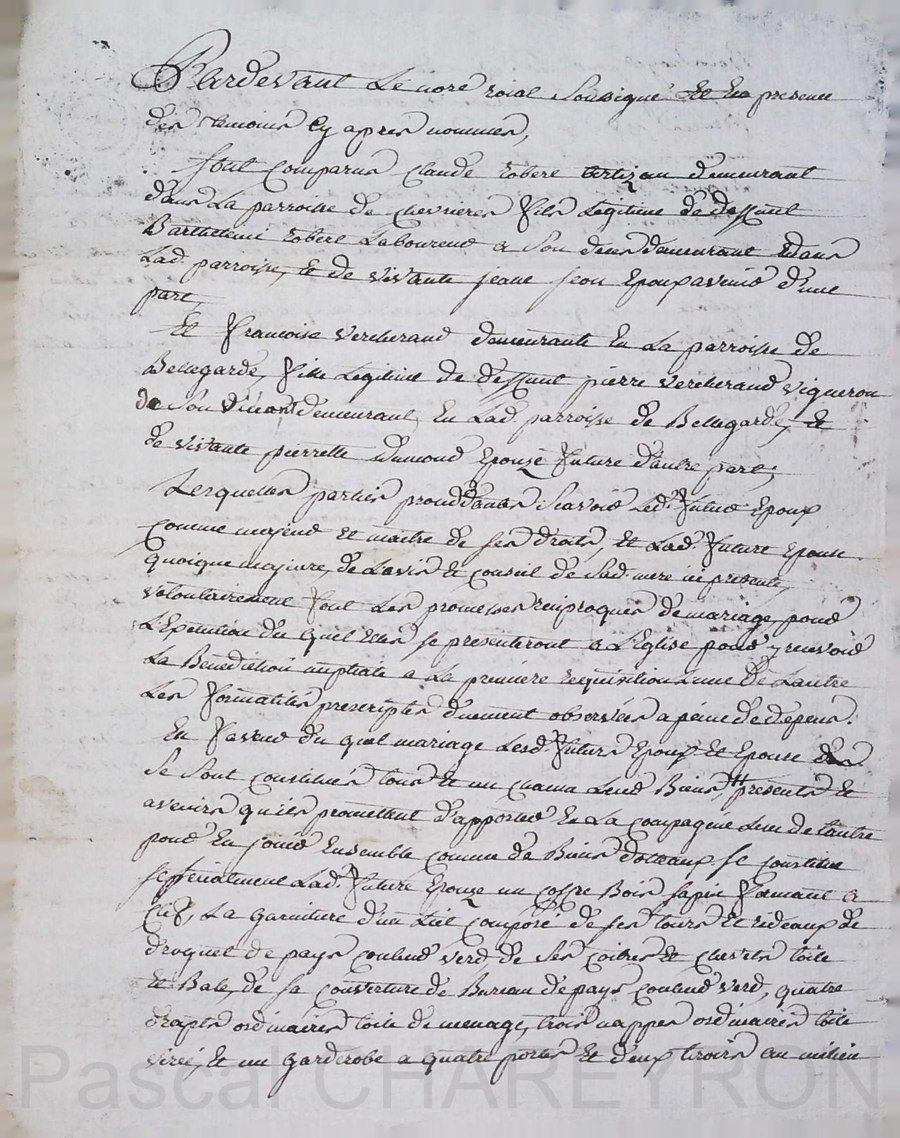 Pardevant Le nore roial Soussigné Et En presence
des temoins Cy apres nommés,
Sont Comparus Claude robert tertizan demeurant
dans La parroisse de chevrieres fils Legitime de deffunt
Barthelemi robert Laboureur a Son deces demeurant dans
Lad. parroisse, et de vivante jeane jeon Epoux avenir d'une
part,
Et francoise vercherand demeurante En La parroisse de
Bellegarde, fille Legitime de deffunt pierre vercherand vigneron
de Son vivant demeurant En Lad. parroisse de Bellegarde, et
de vivante pierrette dumond Epouze future d'autre part,
Lesquelles parties procedantes Scavoir Led. futur Epoux
comme majeur et maitre de ses droits, et Lad. future Epouse
quoique majeure, de Lavis et conseil de Sad. mere ici presente,
volontairement font Les promesses reciproques de mariage, pour
L'Execution du quel Elles se presenteront a L'Eglise pour y recevoir
La Benediction nuptiale a La premiere requisition L'une de L'autre
Les formalités prescriptes duement observées a peine de depens.
En faveur du quel mariage Lesd. futurs Epoux et Epouse
Se Sont constitués tous et un chacun Leurs Biens presents et
avenirs qu'ils promettent d'apporter En La compagnie L'un de L'autre
pour En jouir Ensemble comme de Biens dotaux, se constitue
specialement Lad. future Epouze un coffre Bois sapin fermant a
clef, La garniture d'un Lit composé de ses tours et rideaux de
droguet de pays couleur verd de Ses coitres et chevets toile
et Bale, de sa couverture de Bureau de pays couleur verd, quatre
draps ordinaires toile de menage, trois nappes ordinaires toile
, et un garderobe a quatre portes et deux tiroirs au milieu
Pascal CHAREYRON